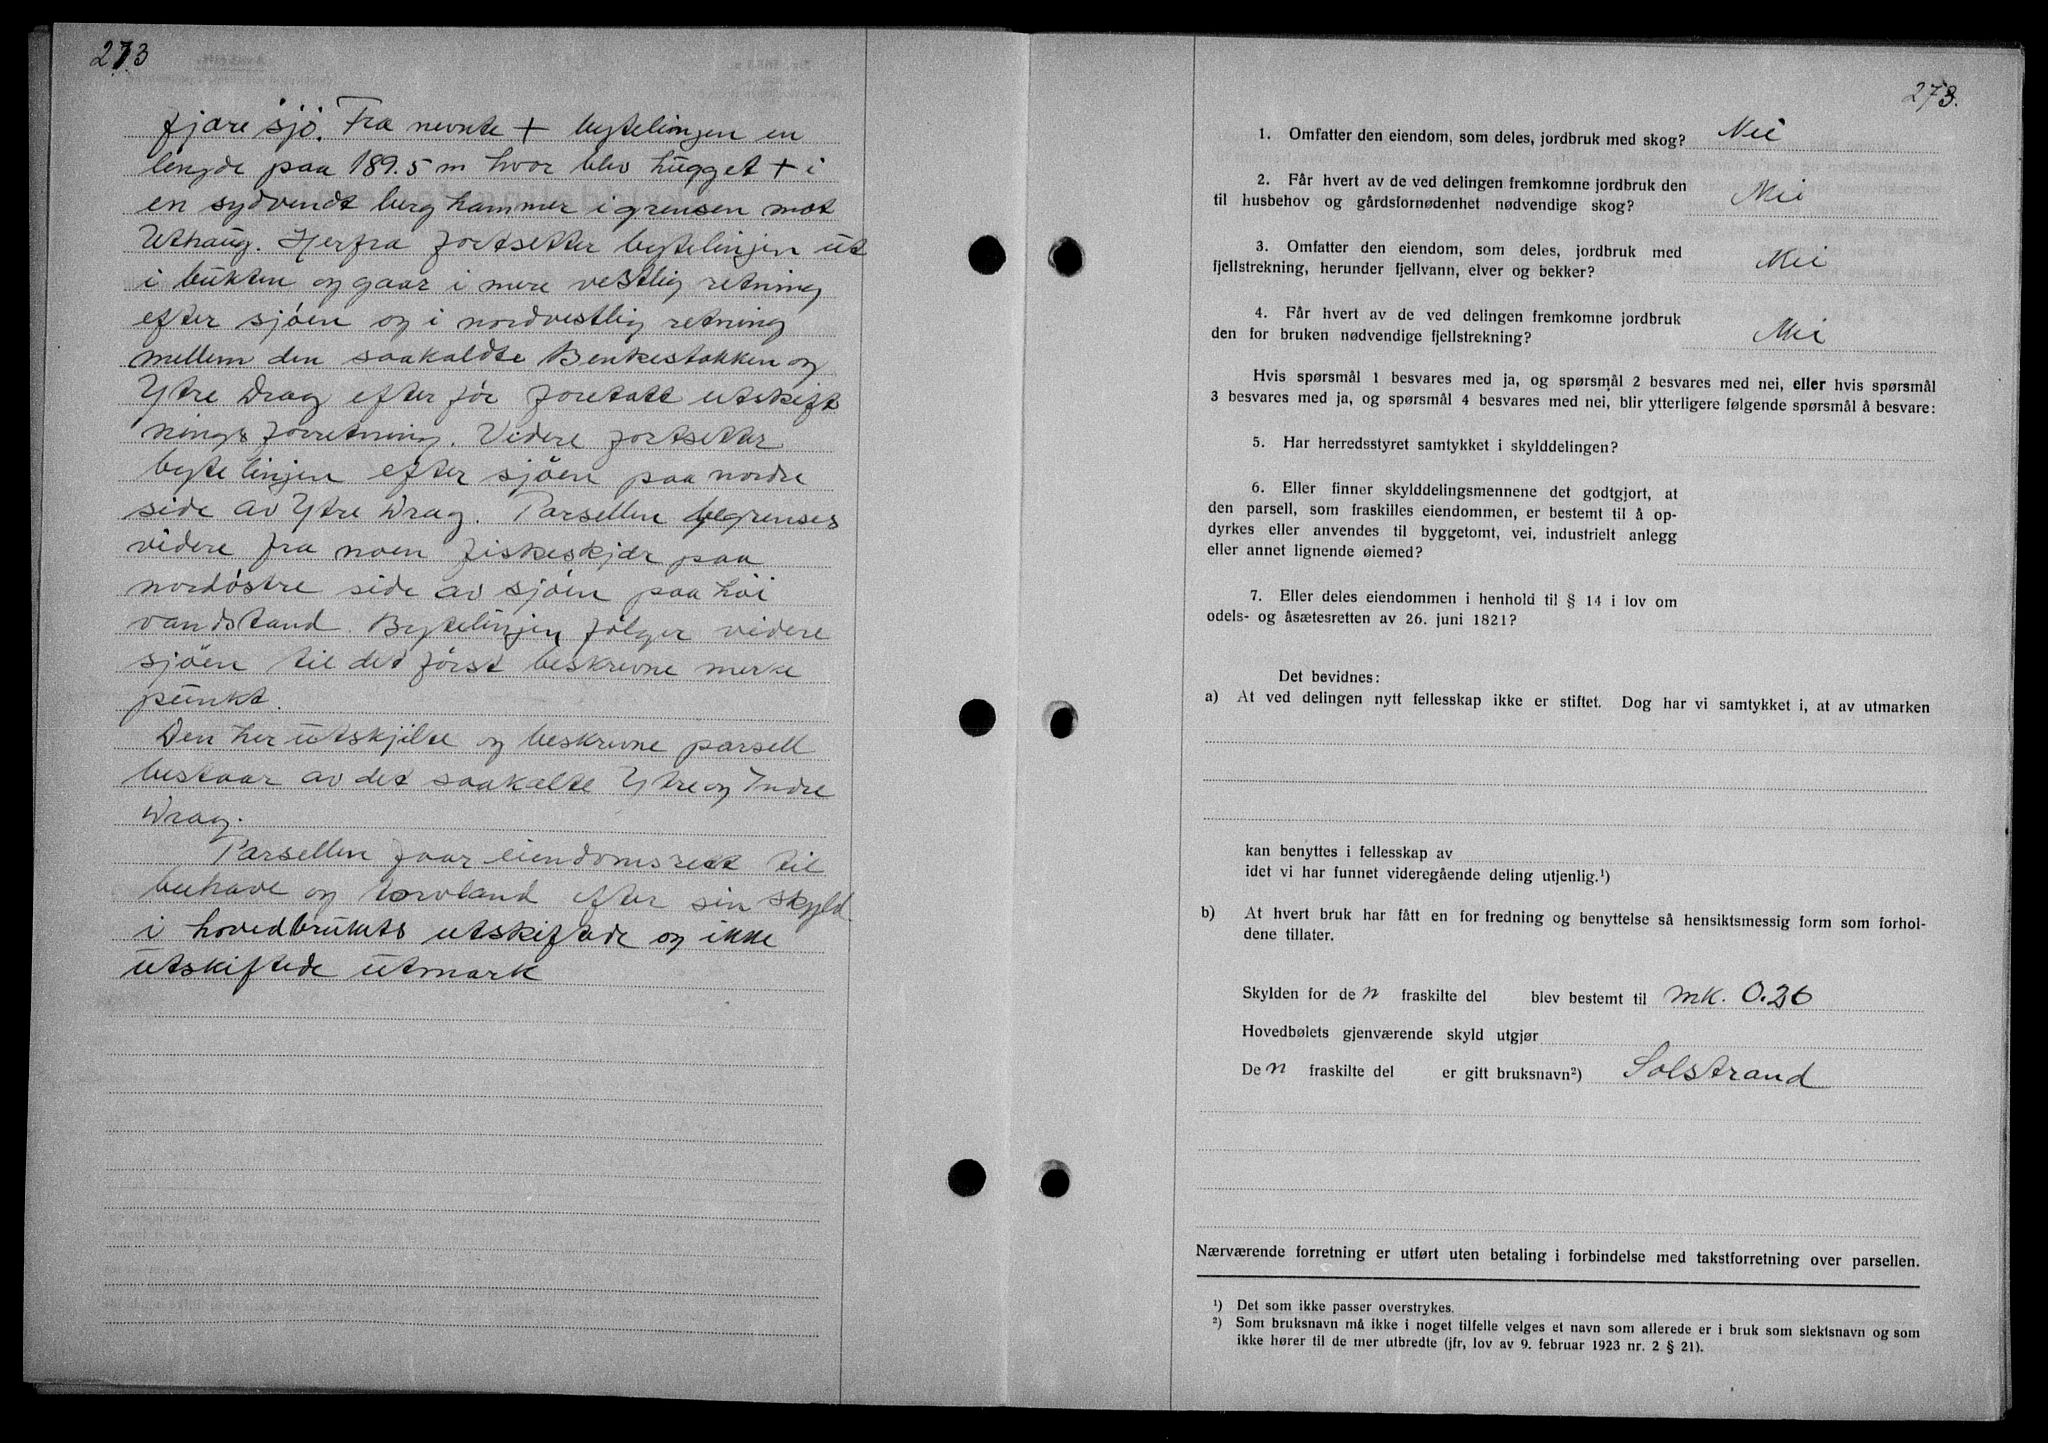 273
fjære sjö. Fra nevnte + bytelinjen en
lengde paa 189.5 m hvor blev hugget + i
en sydvendt berghammer i grensen mot
Uthaug. Herfra fortsetter bytelinjen ut
i bukten og gaar i mere vestlig retning
efter sjöen og i nordvestlig retning
mellem den saakaldte Benkestokken og
Ytre Drag efter för foretatt utskift
nings forretning. Videre fortsetter
bytelinjen efter sjöen paa nordre
side av Ytre Drag. Parsellen begrenses
videre fra noen fiskeskjær paa
nordöstre side av sjöen paa höi
vandstand. Bytelinjen fölger videre
sjöen til det först beskrevne merke
punkt.
Den her utskjilte og beskrevne parsell
bestaar av det saakalte Ytre og Indre
Drag.
Parsellen faar eiendomsrett til
behave og torvland efter sin skyld
i hovedbrukets utskiftede og ikke
utskiftede utmark
273.
1. Omfatter den eiendom, som deles, jordbruk med skog? Nei
2. Får hvert av de ved delingen fremkomne jordbruk den
til husbehov og gårdsfornødenhet nødvendige skog? Nei
3. Omfatter den eiendom, som deles, jordbruk med
fjellstrekning, herunder fjellvann, elver og bekker? Nei
4. Får hvert av de ved delingen fremkomne jordbruk
den for bruken nødvendige fjellstrekning? Nei
Hvis spørsmål 1 besvares med ja, og spørsmål 2 besvares med nei, eller hvis spørsmål
3 besvares med ja, og spørsmål 4 besvares med nei, blir ytterligere følgende spørsmål å besvare:
5. Har herredsstyret samtykket i skylddelingen?
6. Eller finner skylddelingsmennene det godtgjort, at
den parsell, som fraskilles eiendommen, er bestemt til å op-
dyrkes eller anvendes til byggetomt, vei, industrielt anlegg
eller annet lignende øiemed?
7. Eller deles eiendommen i henhold til § 14 i lov om
odels- og åsætesretten av 26. juni 1821?
Det bevidnes:
a) At ved delingen nytt fellesskap ikke er stiftet. Dog har vi samtykket i, at av utmarken
kan benyttes i fellesskap av
idet vi har funnet videregående deling utjenlig.¹)
b) At hvert bruk har fått en for fredning og benyttelse så hensiktsmessig form som forhol-
dene tillater.
Skylden for de n fraskilte del blev bestemt til mk. 0.26
Hovedbølets gjenværende skyld utgjør
De n fraskilte del er gitt bruksnavn²) Solstrand
Nærværende forretning er utført uten betaling i forbindelse med takstforretning over parsellen.
¹) Det som ikke passer overstrykes.
²) Som bruksnavn må ikke i noget tilfelle velges et navn som allerede er i bruk som slektsnavn og som
ikke hører til de mer utbredte (jfr, lov av 9. februar 1923 nr. 2 § 21).